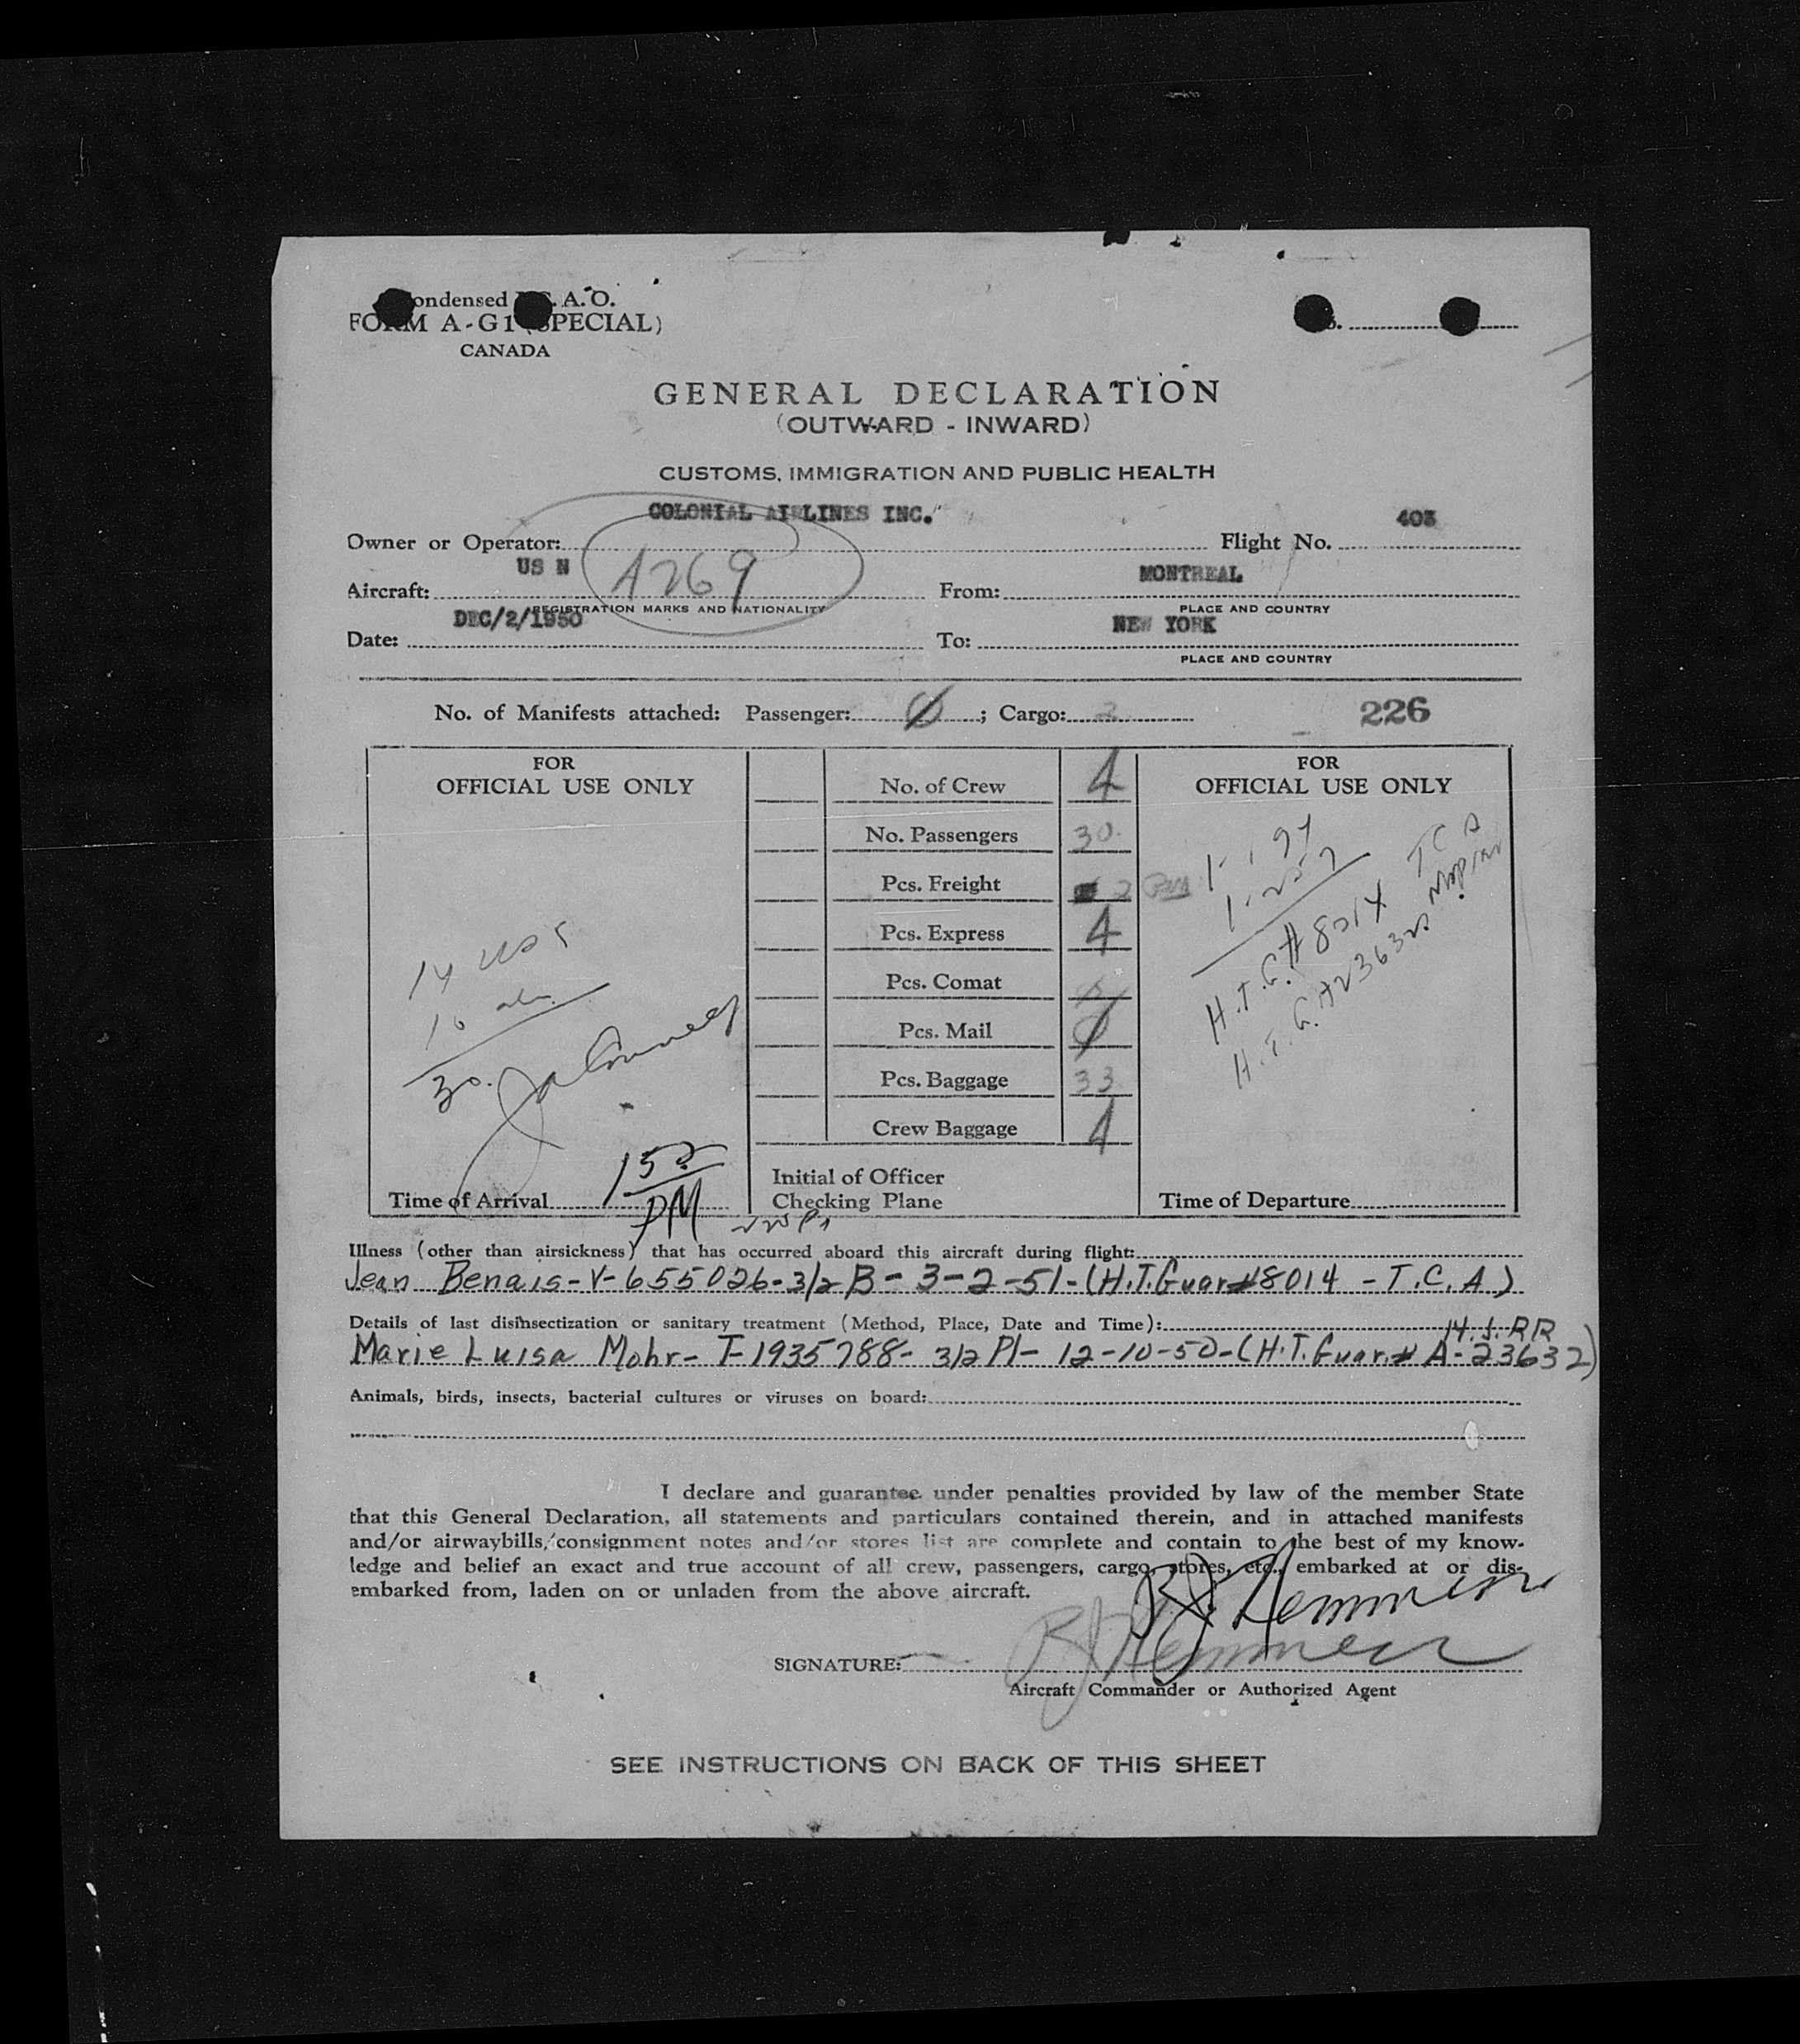 Condensed I.C.A.O.
FORM A-G1 (SPECIAL)
CANADA
GENERAL DECLARATION
(OUTWARD - INWARD)
CUSTOMS, IMMIGRATION AND PUBLIC HEALTH
COLONIAL AIRLINES INC.
Owner or Operator: Flight No. 403
Aircraft: US N A269 From: MONTREAL
REGISTRATION MARKS AND NATIONALITY PLACE AND COUNTRY
Date: DEC/2/1950 To: NEW YORK
PLACE AND COUNTRY
No. of Manifests attached: Passenger: 0; Cargo: 2 226
FOR
OFFICIAL USE ONLY
14
30.
Time of Arrival 152
PM
No. of Crew 4
No. Passengers 30
Pcs. Freight 2
Pcs. Express 4
Pcs. Comat
Pcs. Mail 0
Pcs. Baggage 33
Crew Baggage 4
Initial of Officer
Checking Plane
FOR
OFFICIAL USE ONLY
H.T.G.# 8014 TCA
H.T.G. A23632
Time of Departure
Illness (other than airsickness) that has occurred aboard this aircraft during flight:
Jean Benais-V-655026-3/2 B-3-2-51-(H.T.Guar.#8014 - T.C.A)
Details of last disinsectization or sanitary treatment (Method, Place, Date and Time):
Marie Luisa Mohr-T-1935788-3/2 Pl-12-10-50-(H.T.Guar.# A-23632)
Animals, birds, insects, bacterial cultures or viruses on board:
I declare and guarantee under penalties provided by law of the member State
that this General Declaration, all statements and particulars contained therein, and in attached manifests
and/or airwaybills, consignment notes and/or stores list are complete and contain to the best of my know-
ledge and belief an exact and true account of all crew, passengers, cargo, stores, etc., embarked at or dis-
embarked from, laden on or unladen from the above aircraft.
SIGNATURE:
Aircraft Commander or Authorized Agent
SEE INSTRUCTIONS ON BACK OF THIS SHEET